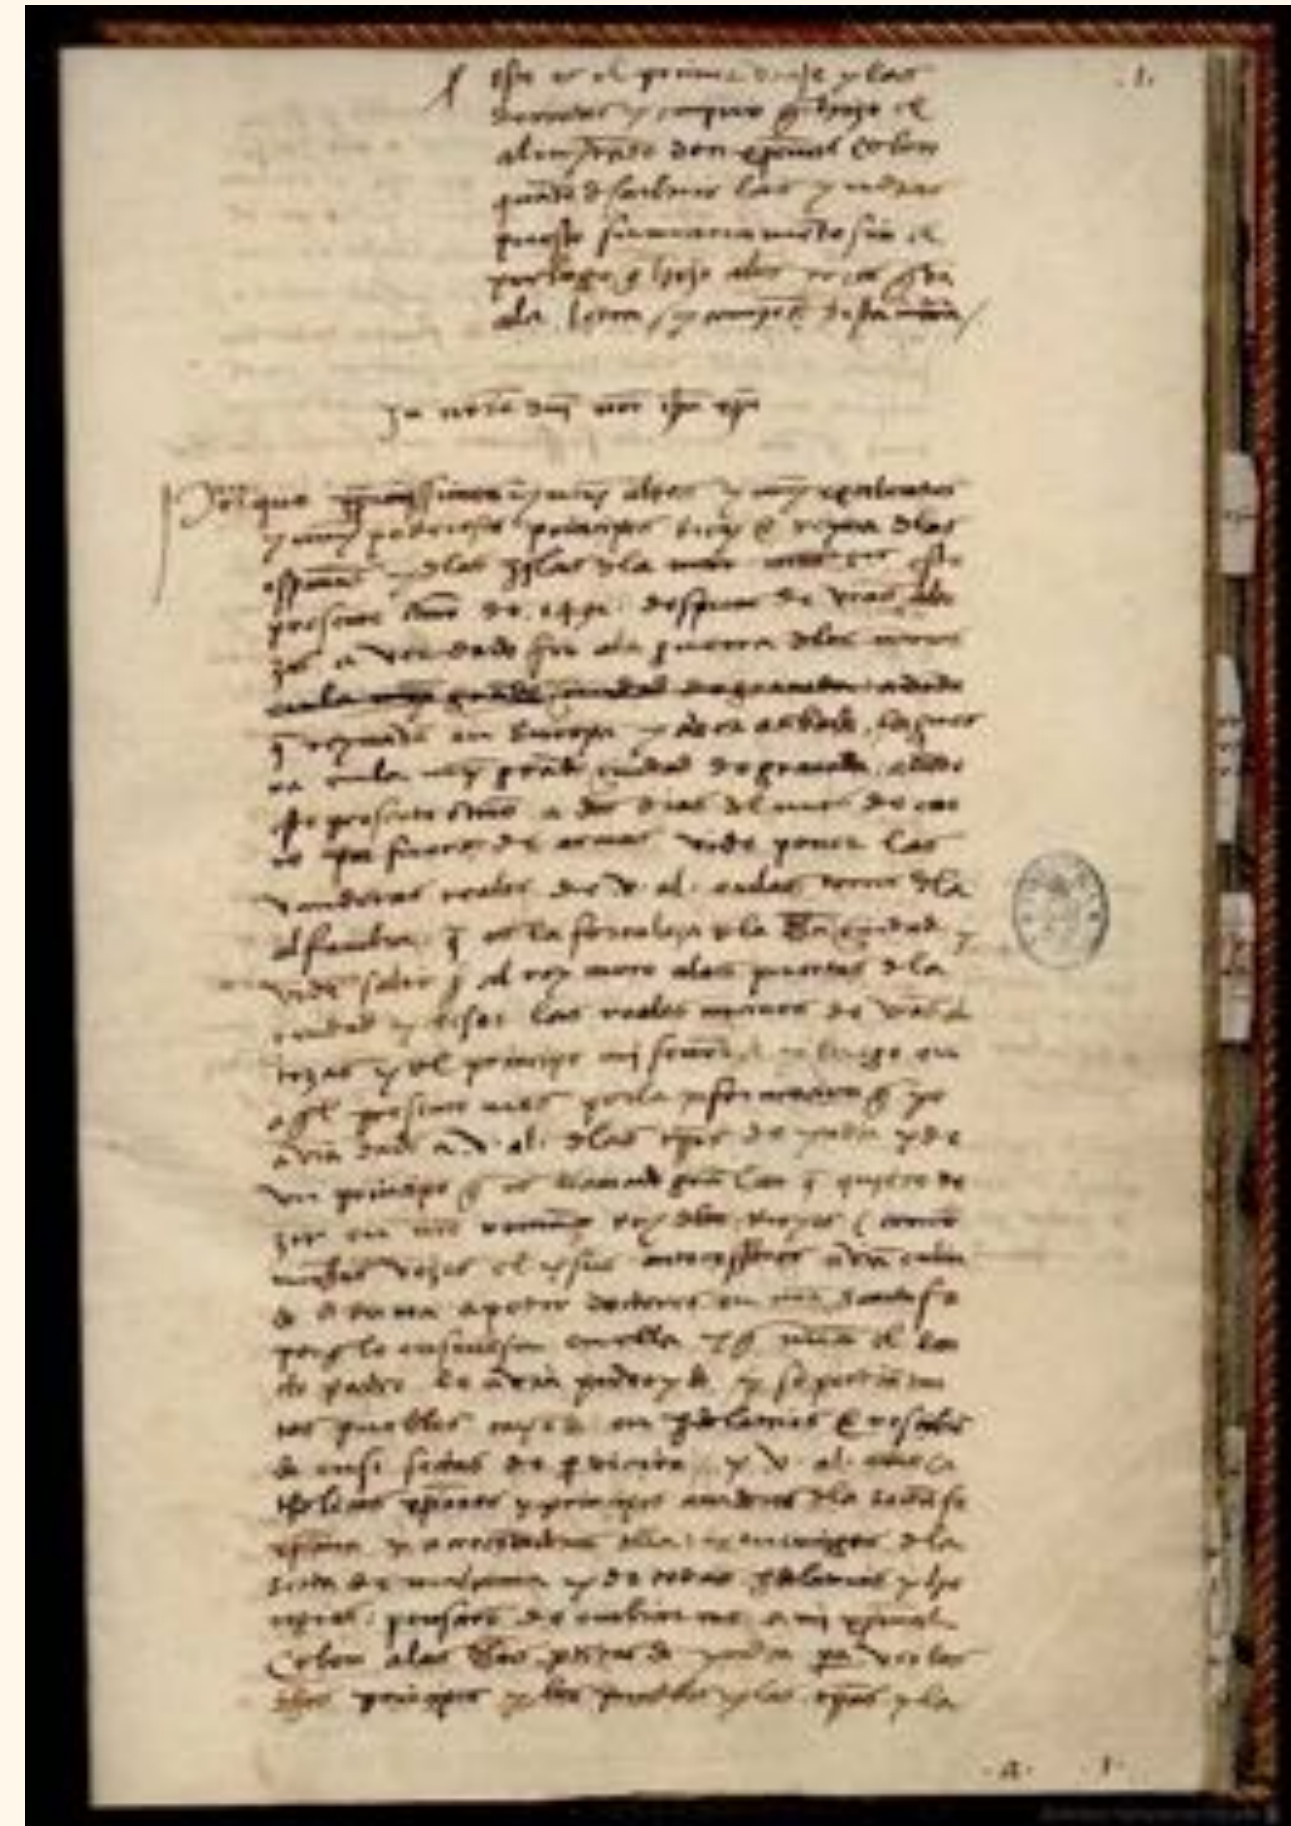 este es el primer viaje y las
derrotas y camino q hizo el
almirãte don xp̃oual Colon
quãdo descubrio las yndias
puesto sumariamẽte sin el
prologo q hizo alos reyes q va
ala letra y comiença desta mãnera
Jn noĩe dñi nrĩ ihũ xp̃i
Porque xp̃ianissimos y muy altos y muy exçelentes
y muy poderosos prinçipes Rey e reyna delas
españas y delas yslas dela mar nr̃os señores este
presente año de 1492 despues de vr̃as alte
zas aver dado fin ala guerra delos moros
enla muy grãde çiudad de granada adõde
q reynavã en Europa y aver acabado la guer
ra enla muy grãde çiudad de granada adõde
este presente año a dos dias del mes de ene
ro por fuerça de armas vide poner las
vanderas reales de v. al. enlas torres dela
alfambra q es la fortaleza dela dh̃a çiudad y
vide salir al rey moro alas puertas dela
çiudad y besar las reales manos de vr̃as al
tezas y del prinçipe mi señor y luego en
aql̃ presente mes por la ynformaçion q yo
avia dado a v. al. delas tr̃ras de yndia y de
vn prinçipe q es llamado grã Can q quiere de
zir en nr̃o romãçe rey delos reyes como
muchas vezes el y sus anteçessores avian enbia
do a roma a pedir doctores en nr̃a sancta fe
porq le enseñasen enella y q nũca el san
cto padre le avia proveydo y se perdian tan
tos pueblos cayẽdo en ydolatrias e resçibiẽ
do ensi sectas de perdiçiõ y v. al. como ca
tholicos xp̃ianos y prinçipes amadores dela sancta fe
xp̃iana y acreçentadores della y enemigos dela
secta de mahoma y de todas ydolatrias y he
regias pensarõ de enbiarme a mi xp̃oual
Colon alas dh̃as partidas de yndia pa ver los
dh̃os prinçipes y los pueblos y las tr̃ras y la